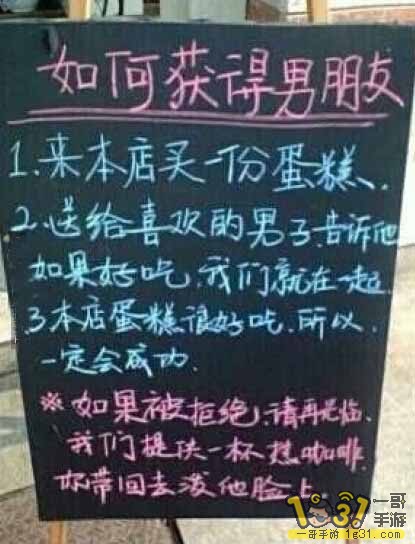 如何获得男朋友
1.来本店买一份蛋糕.
2.送给喜欢的男子.告诉他
如果好吃.我们就在一起.
3本店蛋糕很好吃.所以.
一定会成功.
※如果被拒绝.请再光临.
我们提供一杯热咖啡.
你带回去泼他脸上
1931 一哥手游
一哥手游 1g31.com